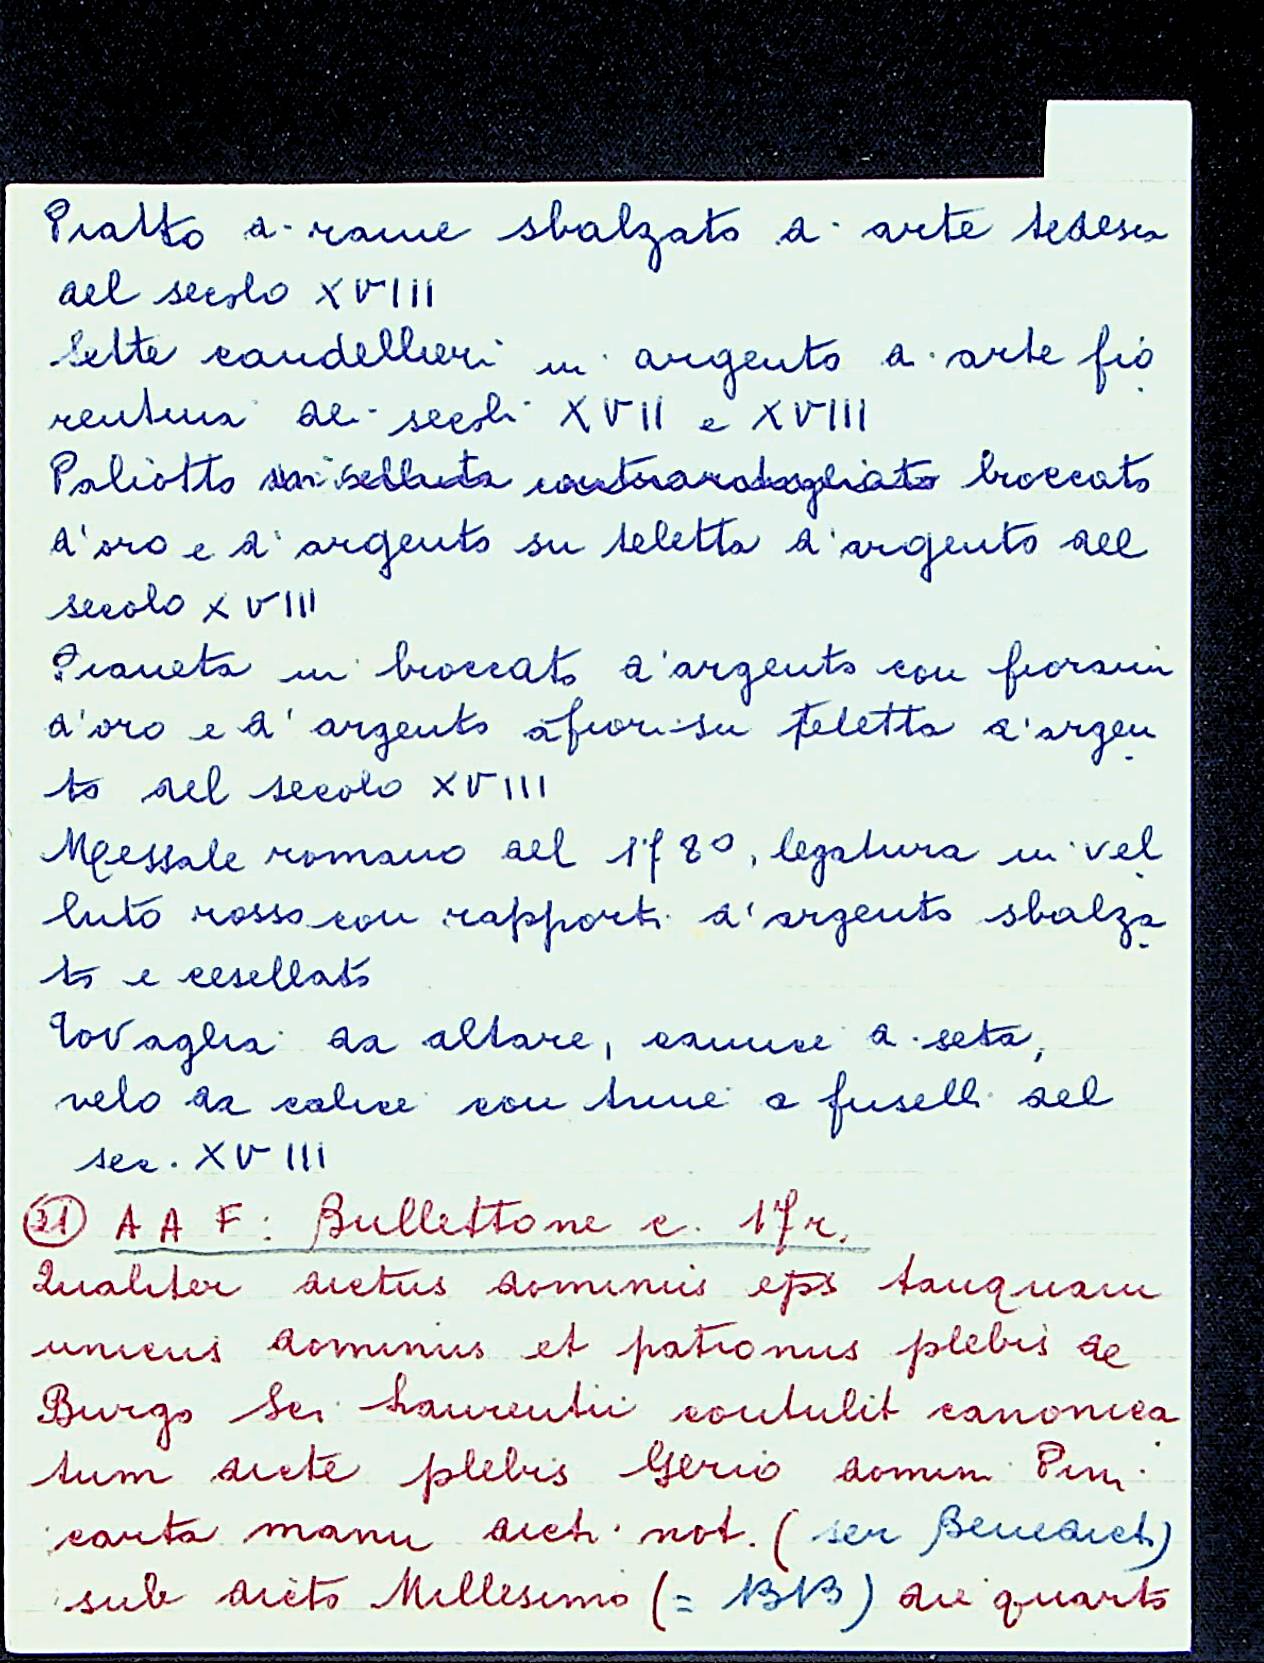 Piatto di rame sbalzato di arte tedesca
del secolo XVIII
Sette candellieri in argento di arte fio
rentina dei secoli XVII e XVIII
Paliotto broccato
d'oro e d'argento su teletta d'argento del
secolo XVIII
Pianeta in broccato d'argento con fiorami
d'oro e d'argento a fiori su teletta d'argen
to del secolo XVIII
Messale romano del 1780, legatura in vel
luto rosso con rapporti d'argento sbalza
to e cesellato
Tovaglia da altare, camice di seta,
velo da calice con trine a fuselli del
sec. XVIII
31 AAF: Bullettone c. 17r.
Qualiter dictus dominus eps tanquam
unicus dominus et patronus plebis de
Burgo Sci Laurentii contulit canonica
tum dicte plebis Gerio domini Pini
carta manu dicti not. (ser Benedicti)
sub dicto Millesimo (= ) die quarto